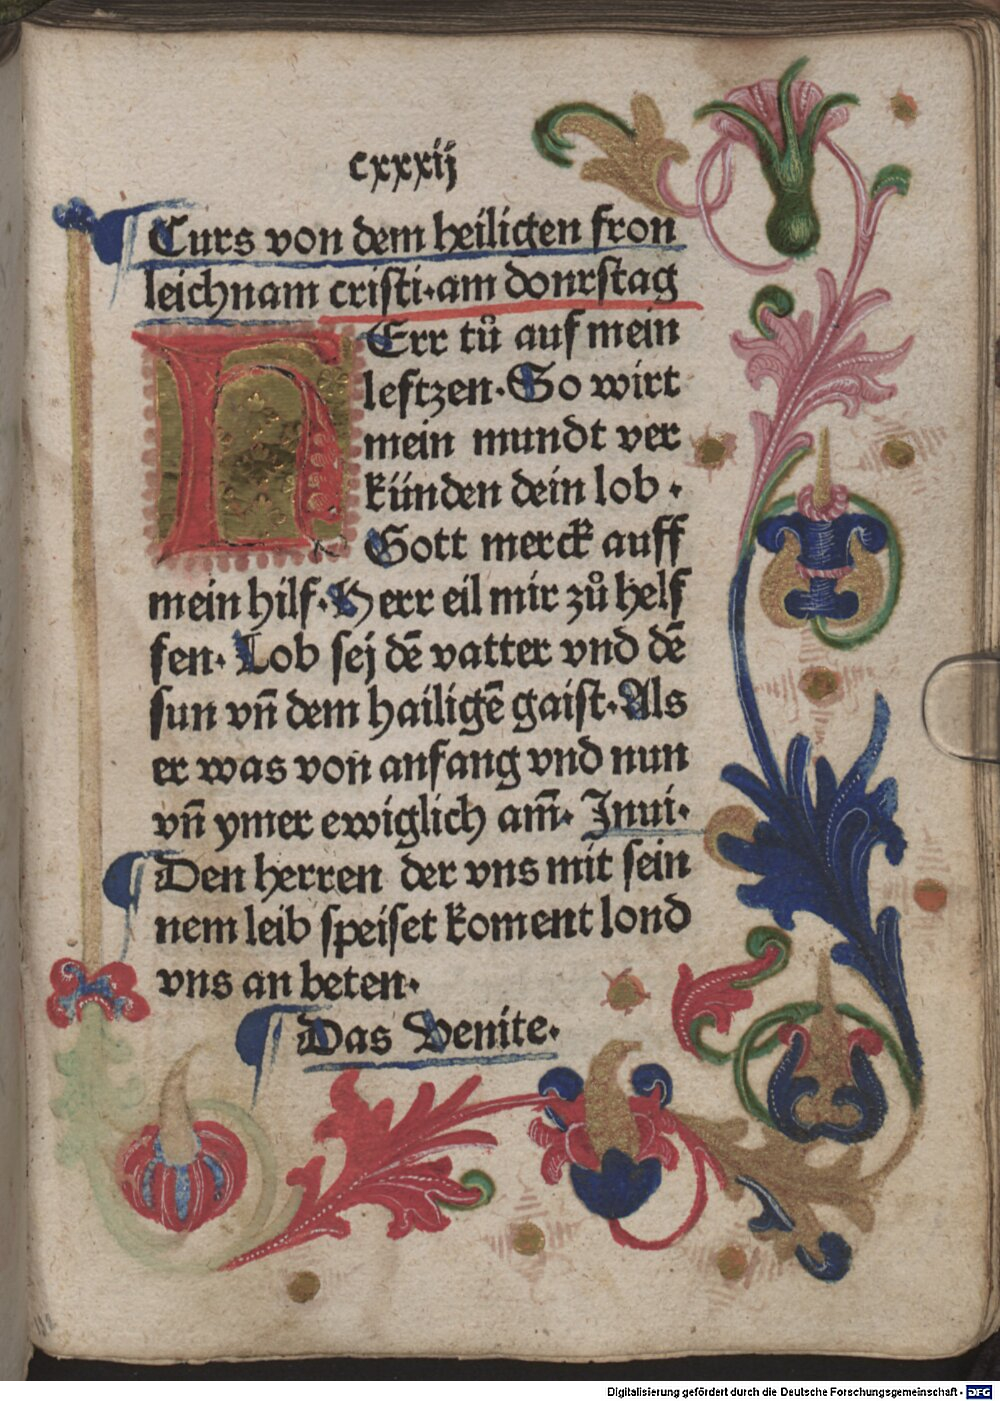 cxxxij
Curs von dem heiligen fron
leichnam cristi·am donrstag
HErr tů auf mein
leftzen·So wirt
mein mundt ver
künden dein lob·
Gott merck auff
mein hilf·Herr eil mir zů helf
fen·Lob sej dē vatter vnd dē
sun vn̄ dem hailigē gaist·Als
er was von anfang vnd nun
vn̄ ymer ewiglich am̄·Inui·
Den herren der vns mit sein
nem leib speiset koment lond
vns an beten·
Das Venite·
132
Digitalisierung gefördert durch die Deutsche Forschungsgemeinschaft - DFG